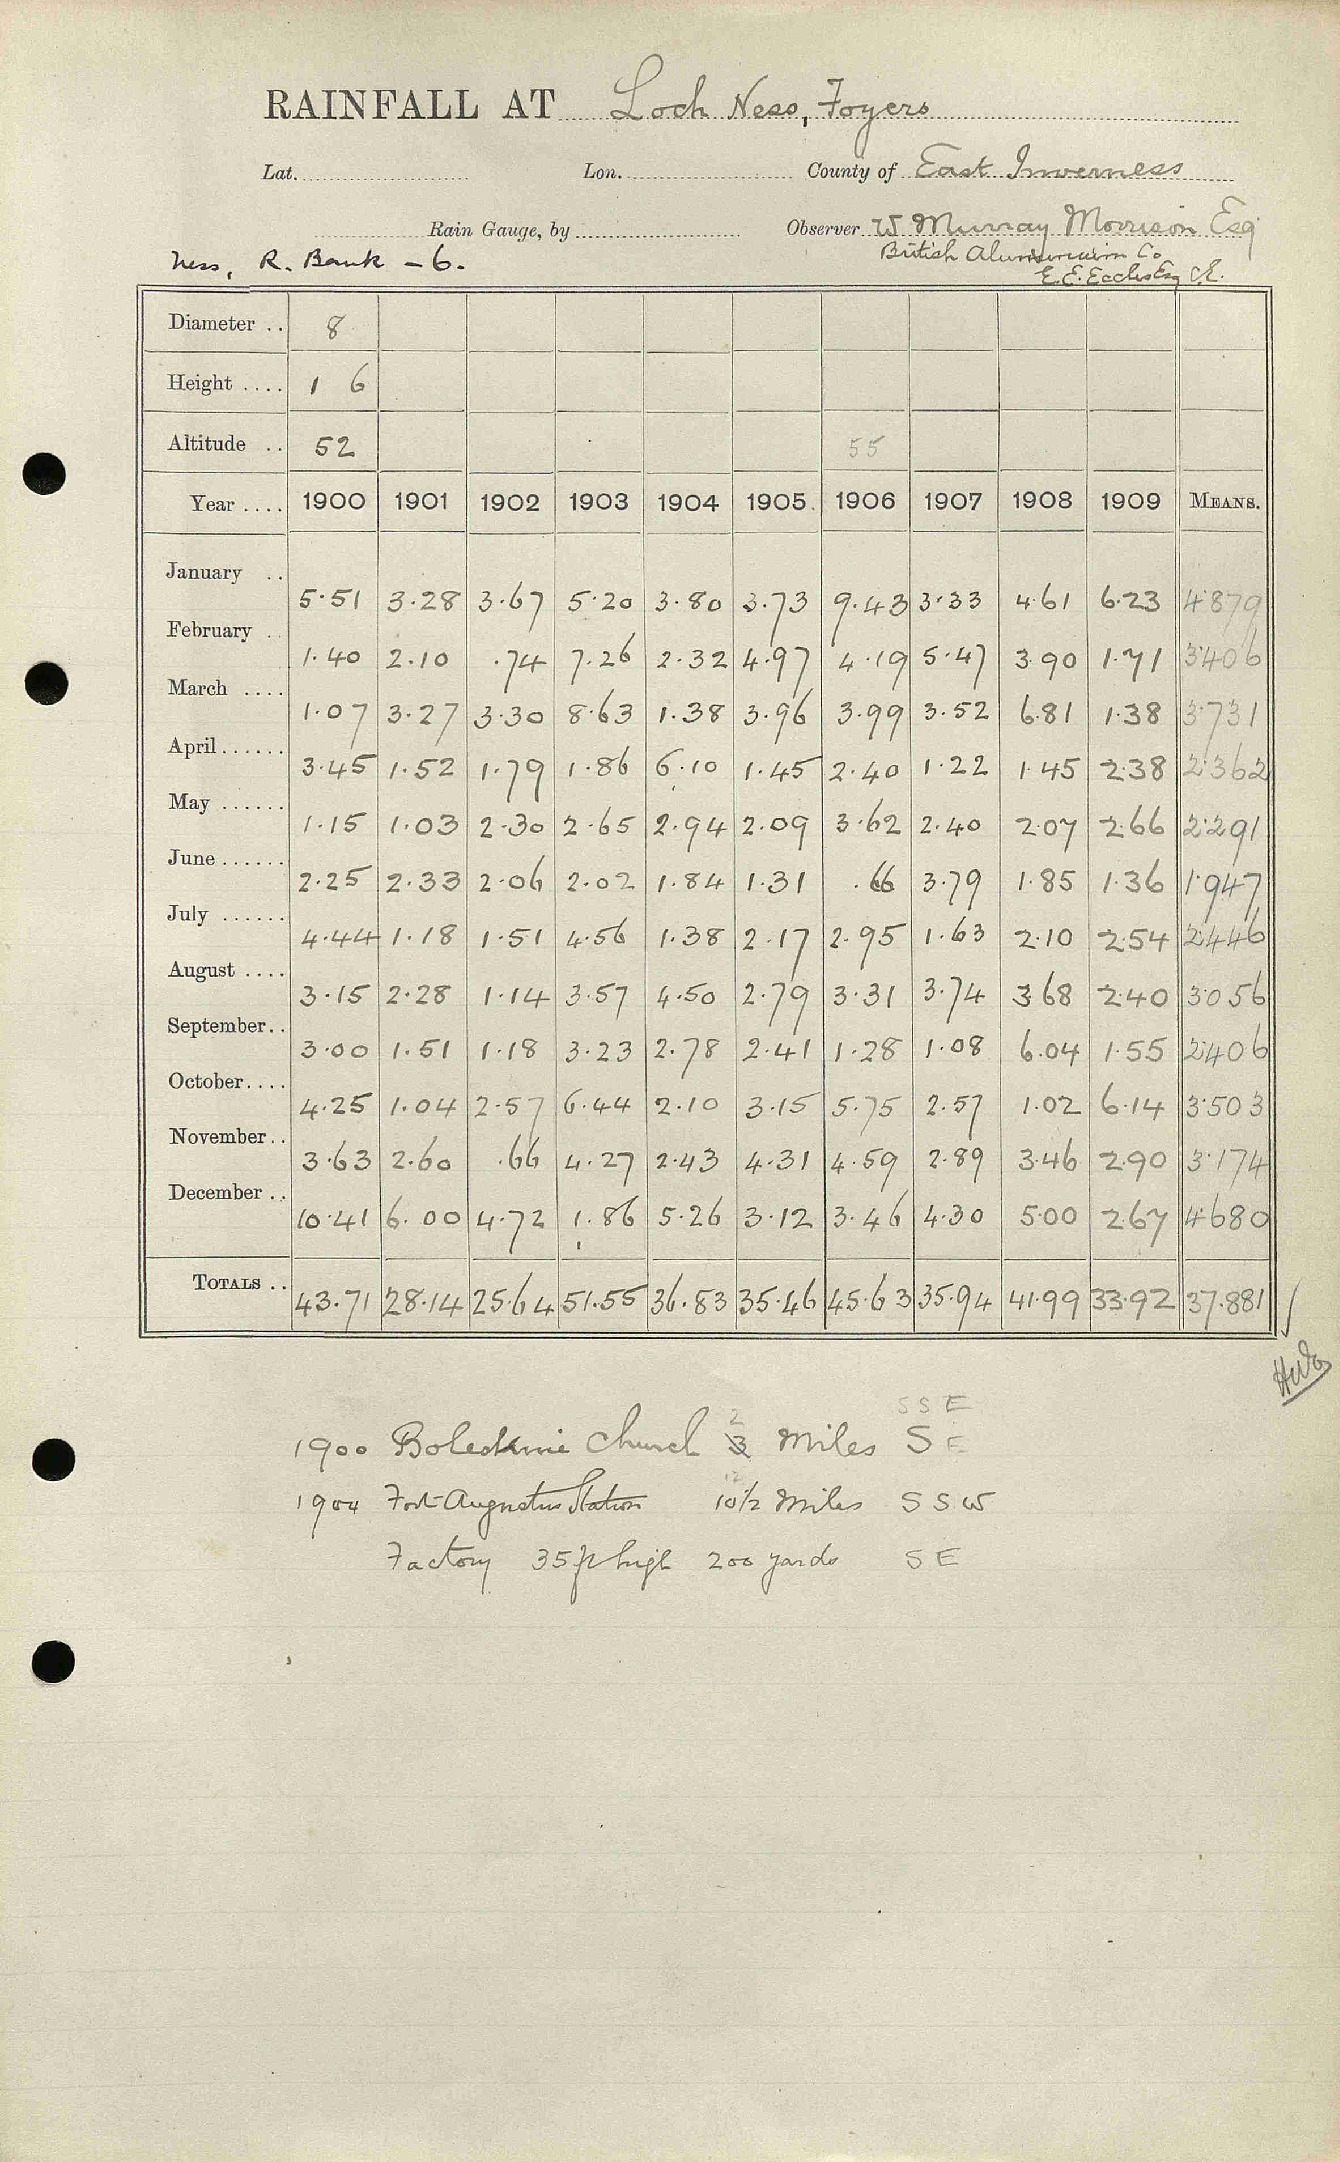 RAINFALL AT Loch Ness, Foyers
Lat. Lon. County of East Inverness
Rain Gauge, by Observer W Murray Morrison Esq
British Aluminium Co
Ness, R. Bank - 6.
E.E. Eccles Esq C.E.
Diameter .. 8
Height .... 1 6
Altitude .. 52 55
Year .... 1900 1901 1902 1903 1904 1905 1906 1907 1908 1909 MEANS.
January .. 5.51 3.28 3.67 5.20 3.80 3.73 9.43 3.33 4.61 6.23 4.879
February .. 1.40 2.10 .74 7.26 2.32 4.97 4.19 5.47 3.90 1.71 3.406
March .... 1.07 3.27 3.30 8.63 1.38 3.96 3.99 3.52 6.81 1.38 3.731
April ...... 3.45 1.52 1.79 1.86 6.10 1.45 2.40 1.22 1.45 2.38 2.362
May ...... 1.15 1.03 2.30 2.65 2.94 2.09 3.62 2.40 2.07 2.66 2.291
June ...... 2.25 2.33 2.06 2.02 1.84 1.31 .66 3.79 1.85 1.36 1.947
July ...... 4.44 1.18 1.51 4.56 1.38 2.17 2.95 1.63 2.10 2.54 2.446
August .... 3.15 2.28 1.14 3.57 4.50 2.79 3.31 3.74 3.68 2.40 3.056
September.. 3.00 1.51 1.18 3.23 2.78 2.41 1.28 1.08 6.04 1.55 2.406
October.... 4.25 1.04 2.57 6.44 2.10 3.15 5.75 2.57 1.02 6.14 3.503
November.. 3.63 2.60 .66 4.27 2.43 4.31 4.59 2.89 3.46 2.90 3.174
December .. 10.41 6.00 4.72 1.86 5.26 3.12 3.46 4.30 5.00 2.67 4.680
TOTALS .. 43.71 28.14 25.64 51.55 36.83 35.46 45.63 35.94 41.99 33.92 37.881
2 SSE
1900 Church 3 Miles S E
12
1904 Fort Augustus Station 10 1/2 Miles SSW
Factory 35 ft high 200 yards SE